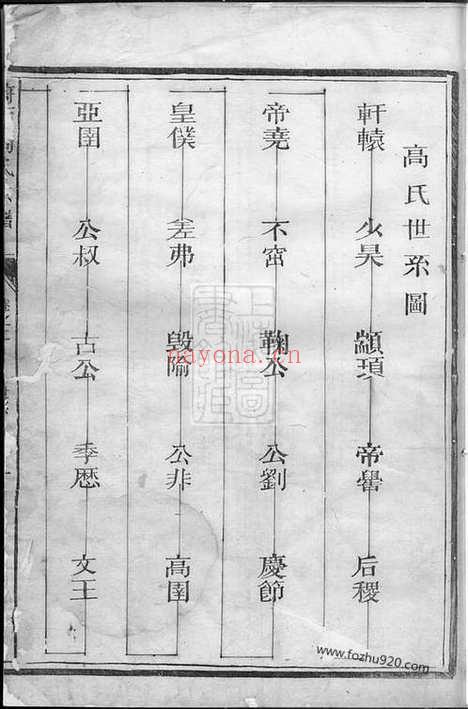 高氏世系圖
軒轅 少昊 顓頊 帝嚳 后稷
帝堯 不窋 鞠公 公劉 慶節
皇僕 差弗 毀隃 公非 高圉
亞圉 公叔 古公 季歷 文王
nayona.cn
www.fozhu920.com